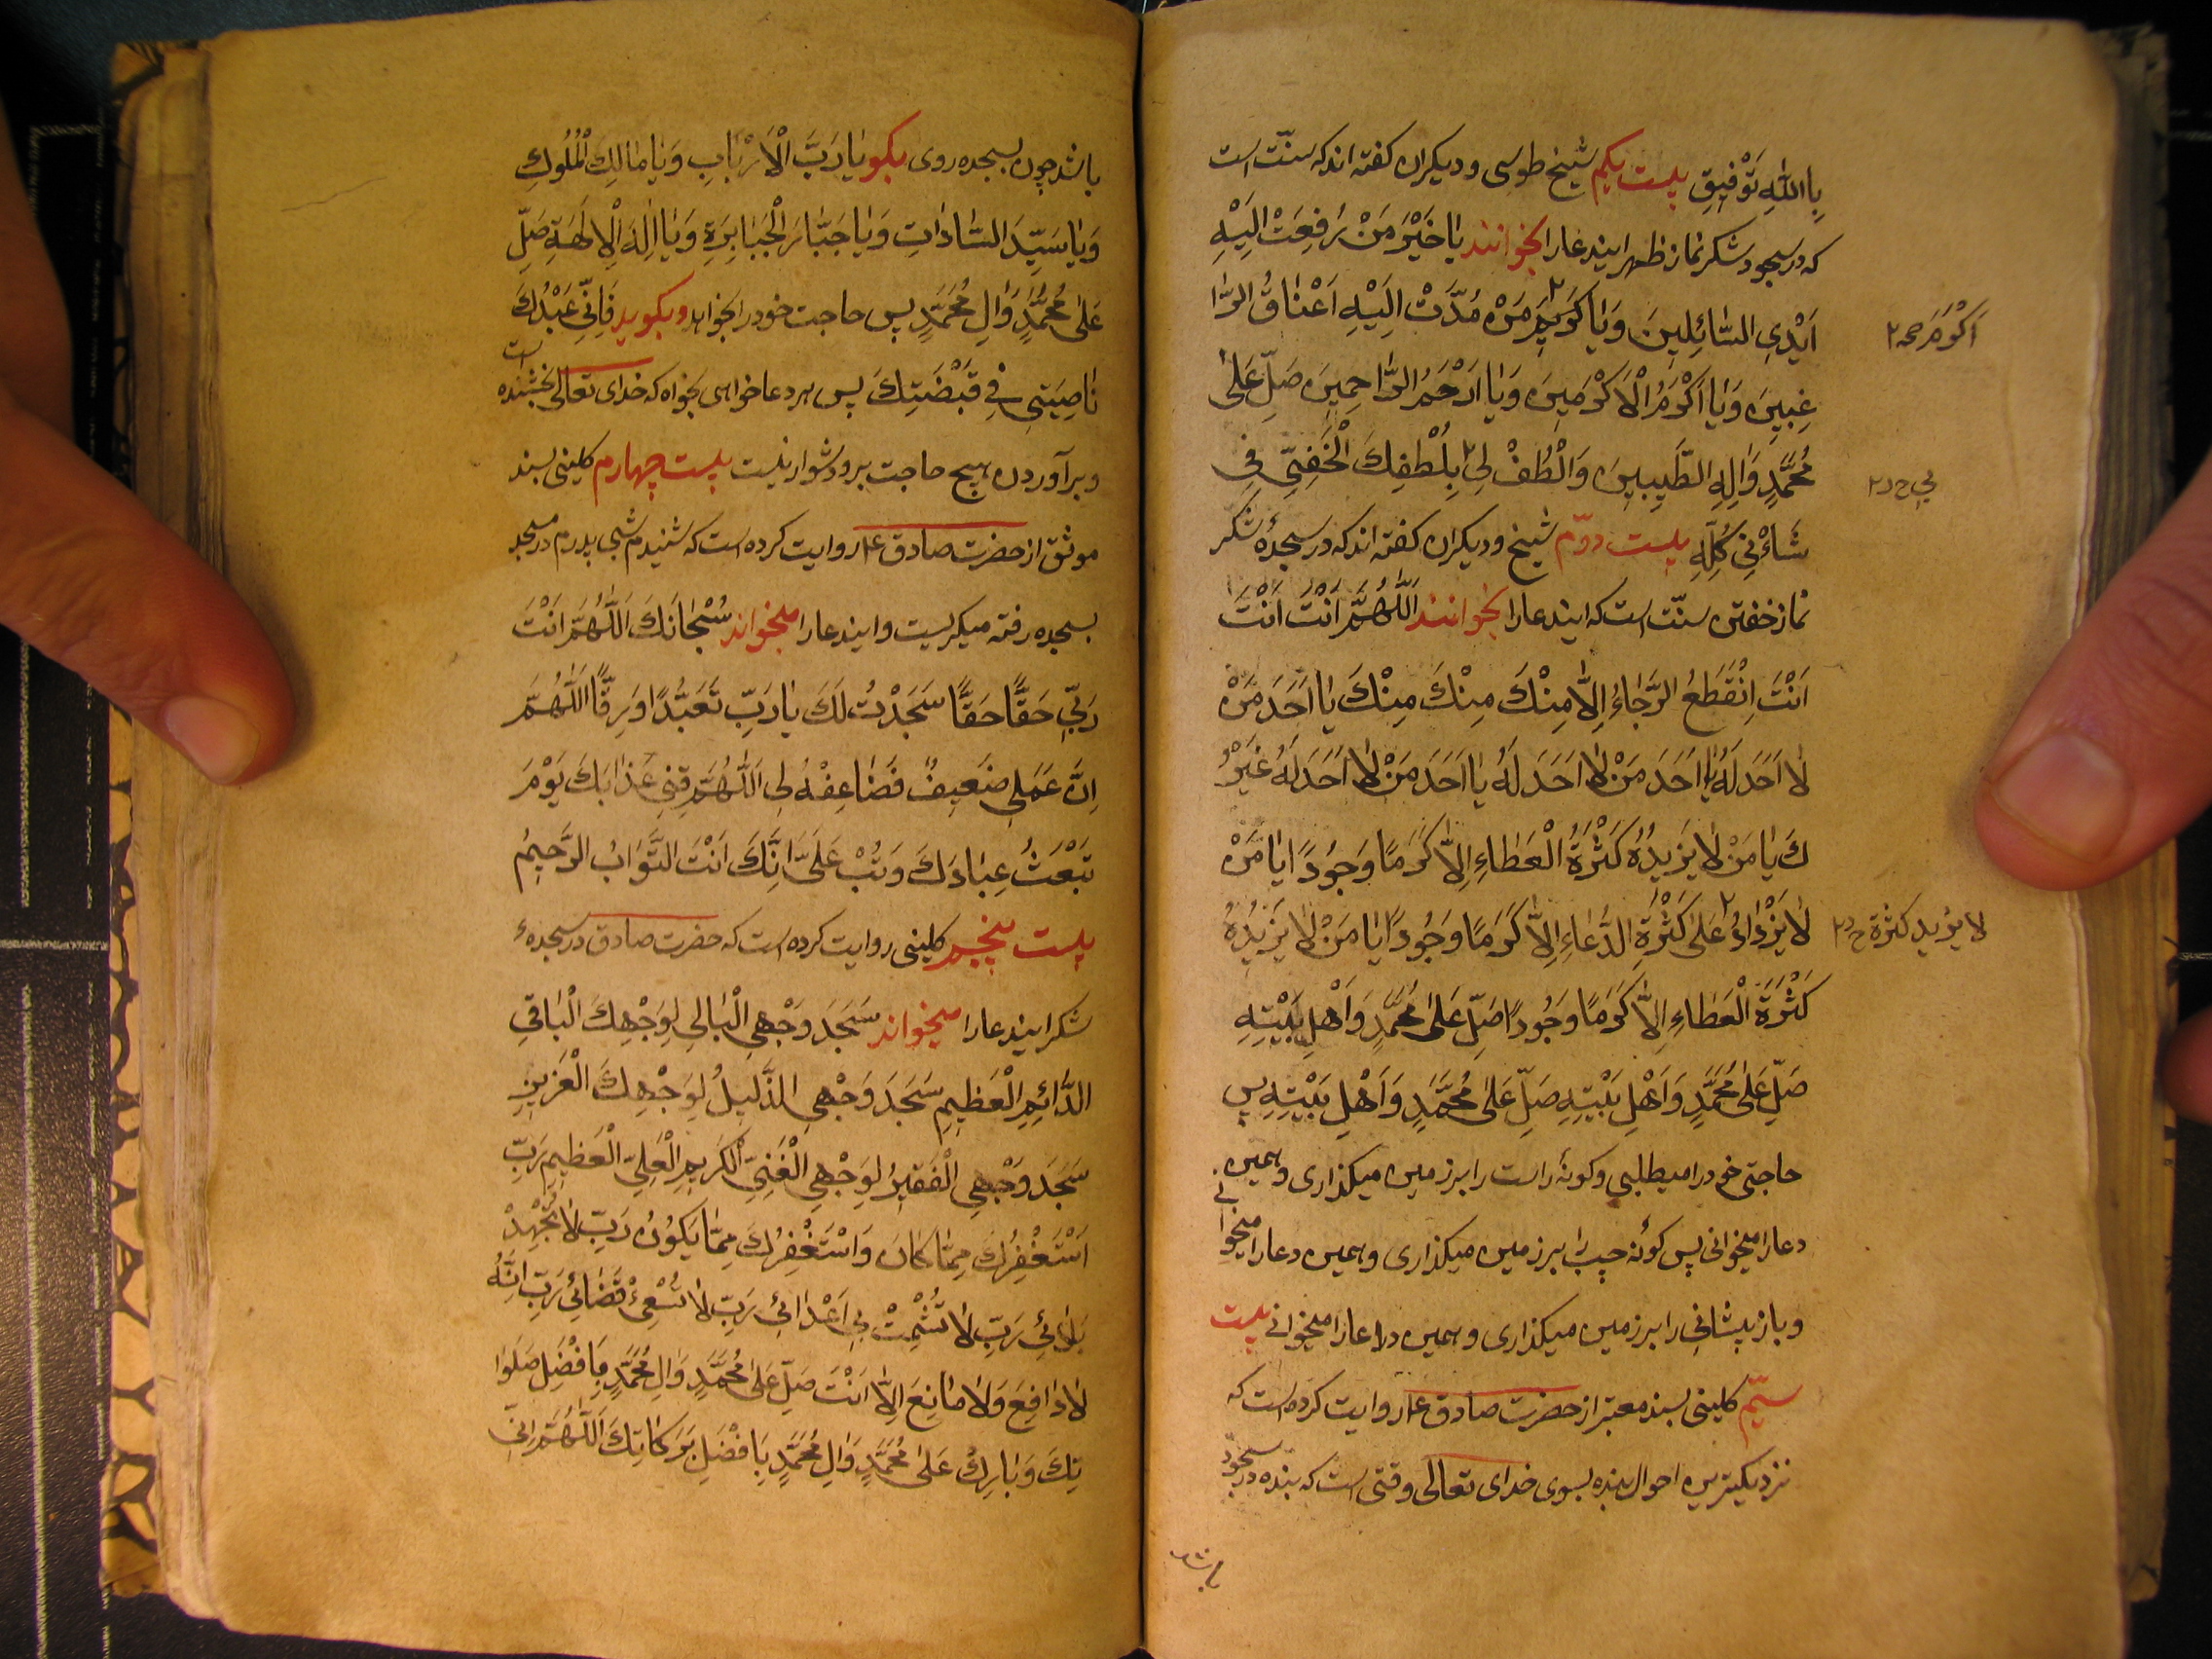 بِاللّٰهِ تَوْفِيقِ بيست يكم شيخ طوسى و ديكران كفته اند كه سنّت است
كه در سجود شكر نماز ظهر ايندعا را بخوانند يَا خَيْرَ مَنْ رُفِعَتْ اِلَيْهِ
اَيْدِى السَّائِلِينَ وَيَا كَرِيمَ مَنْ مُدَّتْ اِلَيْهِ اَعْنَاقُ الرَّا
اَكْرَمَ
غِبِينَ وَيَا اَكْرَمُ الْاَكْرَمِينَ وَيَا اَرْحَمُ الرَّاحِمِينَ صَلِّ عَلىٰ
مُحَمَّدٍ وَاٰلِهِ الطَّيِبِينَ وَالْطُفْ لِى بِلُطْفِكَ الْخَفِيِّ فِى
بِي خ د ٢
شَاْنِى كُلِّهِ بيست دوّم شيخ و ديكران كفته اند كه در سجدهٔ شكر
نماز خفتن سنّت است كه ايندعا را بخوانند اَللّٰهُمَّ اَنْتَ اَنْتَ
اَنْتَ اِنْقَطَعُ الرَّجَاءُ اِلَّا مِنْكَ مِنْكَ مِنْكَ يَا اَحَدَ مَنْ
لٰا اَحَدَ لَهُ يَا اَحَدَ مَنْ لٰا اَحَدَ لَهُ يَا اَحَدَ مَنْ لٰا اَحَدَ لَهُ غَيْرُ
كَ يَا مَنْ لٰا يَزِيدُهُ كَثْرَةُ الْعَطَاءِ اِلَّا كَرَمًا وَجُودًا يَا مَنْ
لٰا يَزْدَادُ عَلىٰ كَثْرَةِ الدُّعَاءِ اِلَّا كَرَمًا وَجُودًا يَا مَنْ لٰا يَزِيدُهُ
لا يزيد كثرة خ د ٢
كَثْرَةَ الْعَطَاءِ اِلَّا كَرَمًا وَجُودًا صَلِّ عَلىٰ مُحَمَّدٍ وَاَهْلِ بَيْتِهِ
صَلِّ عَلىٰ مُحَمَّدٍ وَاَهْلِ بَيْتِهِ صَلِّ عَلىٰ مُحَمَّدٍ وَاَهْلِ بَيْتِهِ پس
حاجتى خود را ميطلبى و كونهٔ راست را بر زمين ميكذارى و همين
دعا را ميخوانى پس كونهٔ چپ را بر زمين ميكذارى و همين دعا را ميخوانى
و باز پيشانى را بر زمين ميكذارى و همين دعا را ميخوانى بيست
سيّم كلينى بسند معتبر از حضرت صادق ع روايت كرده است كه
نزديكترين احوال بنده بسوى خداى تعالى وقتى است كه بنده در سجود
باشد
باشد چون بسجده روى بكو يَا رَبَّ الْاَرْبَابِ وَيَا مَالِكَ الْمُلُوكِ
وَيَا سَيِّدَ السَّادَاتِ وَيَا جَبَّارَ الْجَبَابِرَةِ وَيَا اِلٰهَ الْاٰلِهَةِ صَلِّ
عَلىٰ مُحَمَّدٍ وَاٰلِ مُحَمَّدٍ پس حاجت خود را بخواهد و بكويد فَاِنِّى عَبْدُكَ
نَاصِيَتِى فِى قَبْضَتِكَ پس هر دعا خواهى بخواه كه خداى تعالى بخشنده است
و برآوردن هيچ حاجت برو دشوار نيست بيست چهارم كلينى بسند
موثق از حضرت صادق ع روايت كرده است كه شنيدم شبى پدرم در مسجد
بسجده رفته ميكريست و ايندعا را ميخواند سُبْحَانَكَ اَللّٰهُمَّ اَنْتَ
رَبِّي حَقًّا حَقًّا سَجَدْتُ لَكَ يَا رَبِّ تَعَبُّدًا وَرِقًّا اَللّٰهُمَّ
اِنَّ عَمَلِى ضَعِيفٌ فَضَاعِفْهُ لِى اَللّٰهُمَّ قِنِى عَذَابَكَ يَوْمَ
تَبْعَثُ عِبَادَكَ وَتُبْ عَلَىَّ اِنَّكَ اَنْتَ التَّوَّابُ الرَّحِيمُ
بيست پنجم كلينى روايت كرده است كه حضرت صادق در سجدهٔ
شكر ايندعا را ميخواند سَجَدَ وَجْهِىَ الْبَالِى لِوَجْهِكَ الْبَاقِى
الدَّائِمِ الْعَظِيمِ سَجَدَ وَجْهِى الذَّلِيلُ لِوَجْهِكَ الْعَزِيزِ
سَجَدَ وَجْهِى الْفَقِيرُ لِوَجْهِى الْغَنِىِّ الْكَرِيمِ الْعَلِىِّ الْعَظِيمِ رَبِّ
اَسْتَغْفِرُكَ مِمَّا كَانَ وَاَسْتَغْفِرُكَ مِمَّا يَكُونُ رَبِّ لٰا تُجْهِدْ
بَلٰائِى رَبِّ لٰا تُشْمِتْ بِى اَعْدَائِى رَبِّ لٰا تُسِئْ قَضَائِى رَبِّ اِنَّهُ
لٰا دَافِعَ وَلٰا مَانِعَ اِلَّا اَنْتَ صَلِّ عَلىٰ مُحَمَّدٍ وَاٰلِ مُحَمَّدٍ بِاَفْضَلِ صَلَوَا
تِكَ وَبَارِكْ عَلىٰ مُحَمَّدٍ وَاٰلِ مُحَمَّدٍ بِاَفْضَلِ بَرَكَاتِكَ اَللّٰهُمَّ اِنِّى